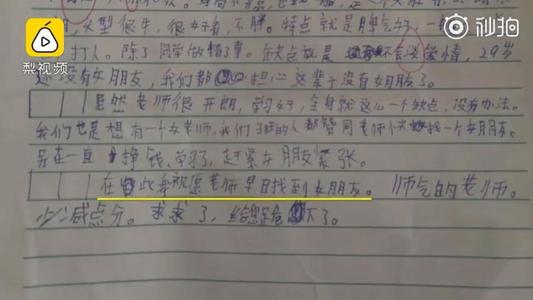 梨视频
秒拍
发型很牛,很好看,不胖。特点就是脾气好,一
打人。除了同学做错事。缺点就是不会谈爱情,29岁
还没有女朋友,我们都担心这辈子没有女朋友了。
虽然老师很开朗,学习好,全身就这么一个缺点,没有办法。
我们也是想有一个女老师,我们班的人都赞同老师找一个女朋友。
别在一直挣钱、学习了,赶紧女朋友紧张。
在此我祝愿老师早日找到女朋友。帅气的老师。
少减点分。求求了,给您